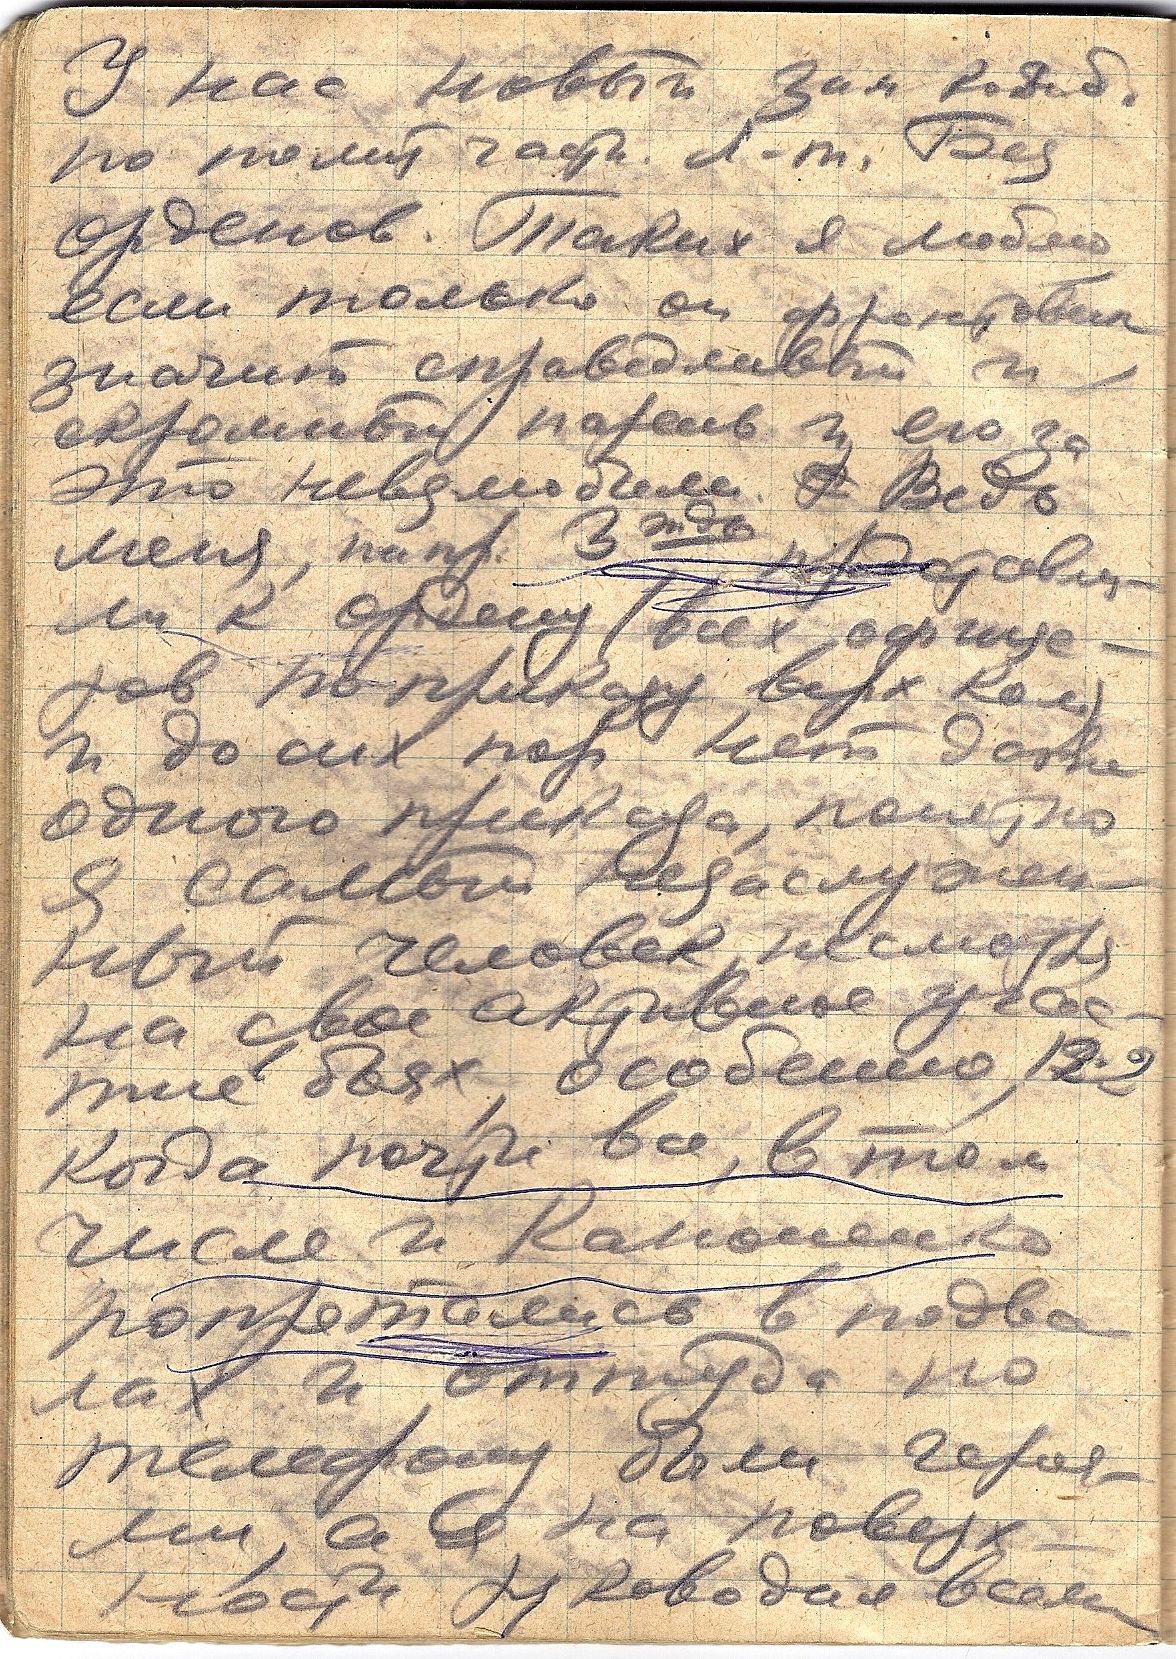 У нас новый зам кодив.
по полит части. Л-т. Без
орденов. Таких я люблю
если только он фронтовик
значит справедливый и
скромный парень и его за
это невзлюбили. Ведь
меня, напр. 3жды представи-
ли к ордену, всех офице-
ров по приказу верх ком,
и до сих пор нет даже
одного приказа, понятно
я самый незаслужен-
ный человек, несмотря
на свое активное учас-
тие боях, особенно 12.2
когда почти все, в том
числе и Каноненко
попрятались в подва
лах и оттуда по
телефону были героя-
ми, а я на поверх-
ности руководил всем